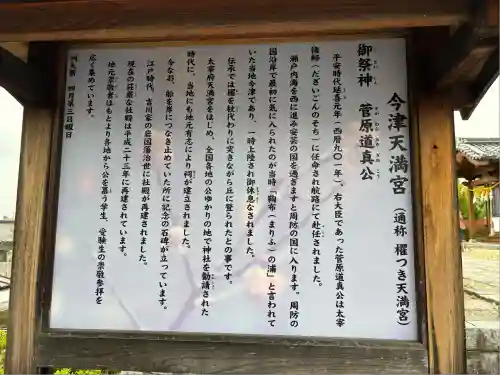 今津天満宮（通称　櫂つき天満宮）
御祭神　菅原道真公
平安時代延喜元年（西暦九〇一年）、右大臣であった菅原道真公は太宰
権帥（だざいごんのそち）に任命され航路にて赴任されました。
瀬戸内海を西に進み安芸の国を過ぎますと周防の国に入ります。周防の
国沿岸で最初に気に入られたのが当時「鞠布（まりふ）の浦」と言われて
いた当地今津であり、一時上陸され御休息なされました。
伝承では櫂を杖代わりに突きながら丘に登られたとの事です。
太宰府天満宮をはじめ、全国各地の公ゆかりの地で神社を勧請された
時代に、当地にも地元有志により祠が建立されました。
今なお、船を岸につなき止めていた所に記念の石碑が立っています。
江戸時代、吉川家の岩国藩治世に社殿が再建されました。
現在の荘厳な社殿は平成二十三年に再建されています。
地元崇敬者はもとより各地から公を慕う学生、受験生の崇敬参拝を
広く集めています。
例大祭　四月第三日曜日